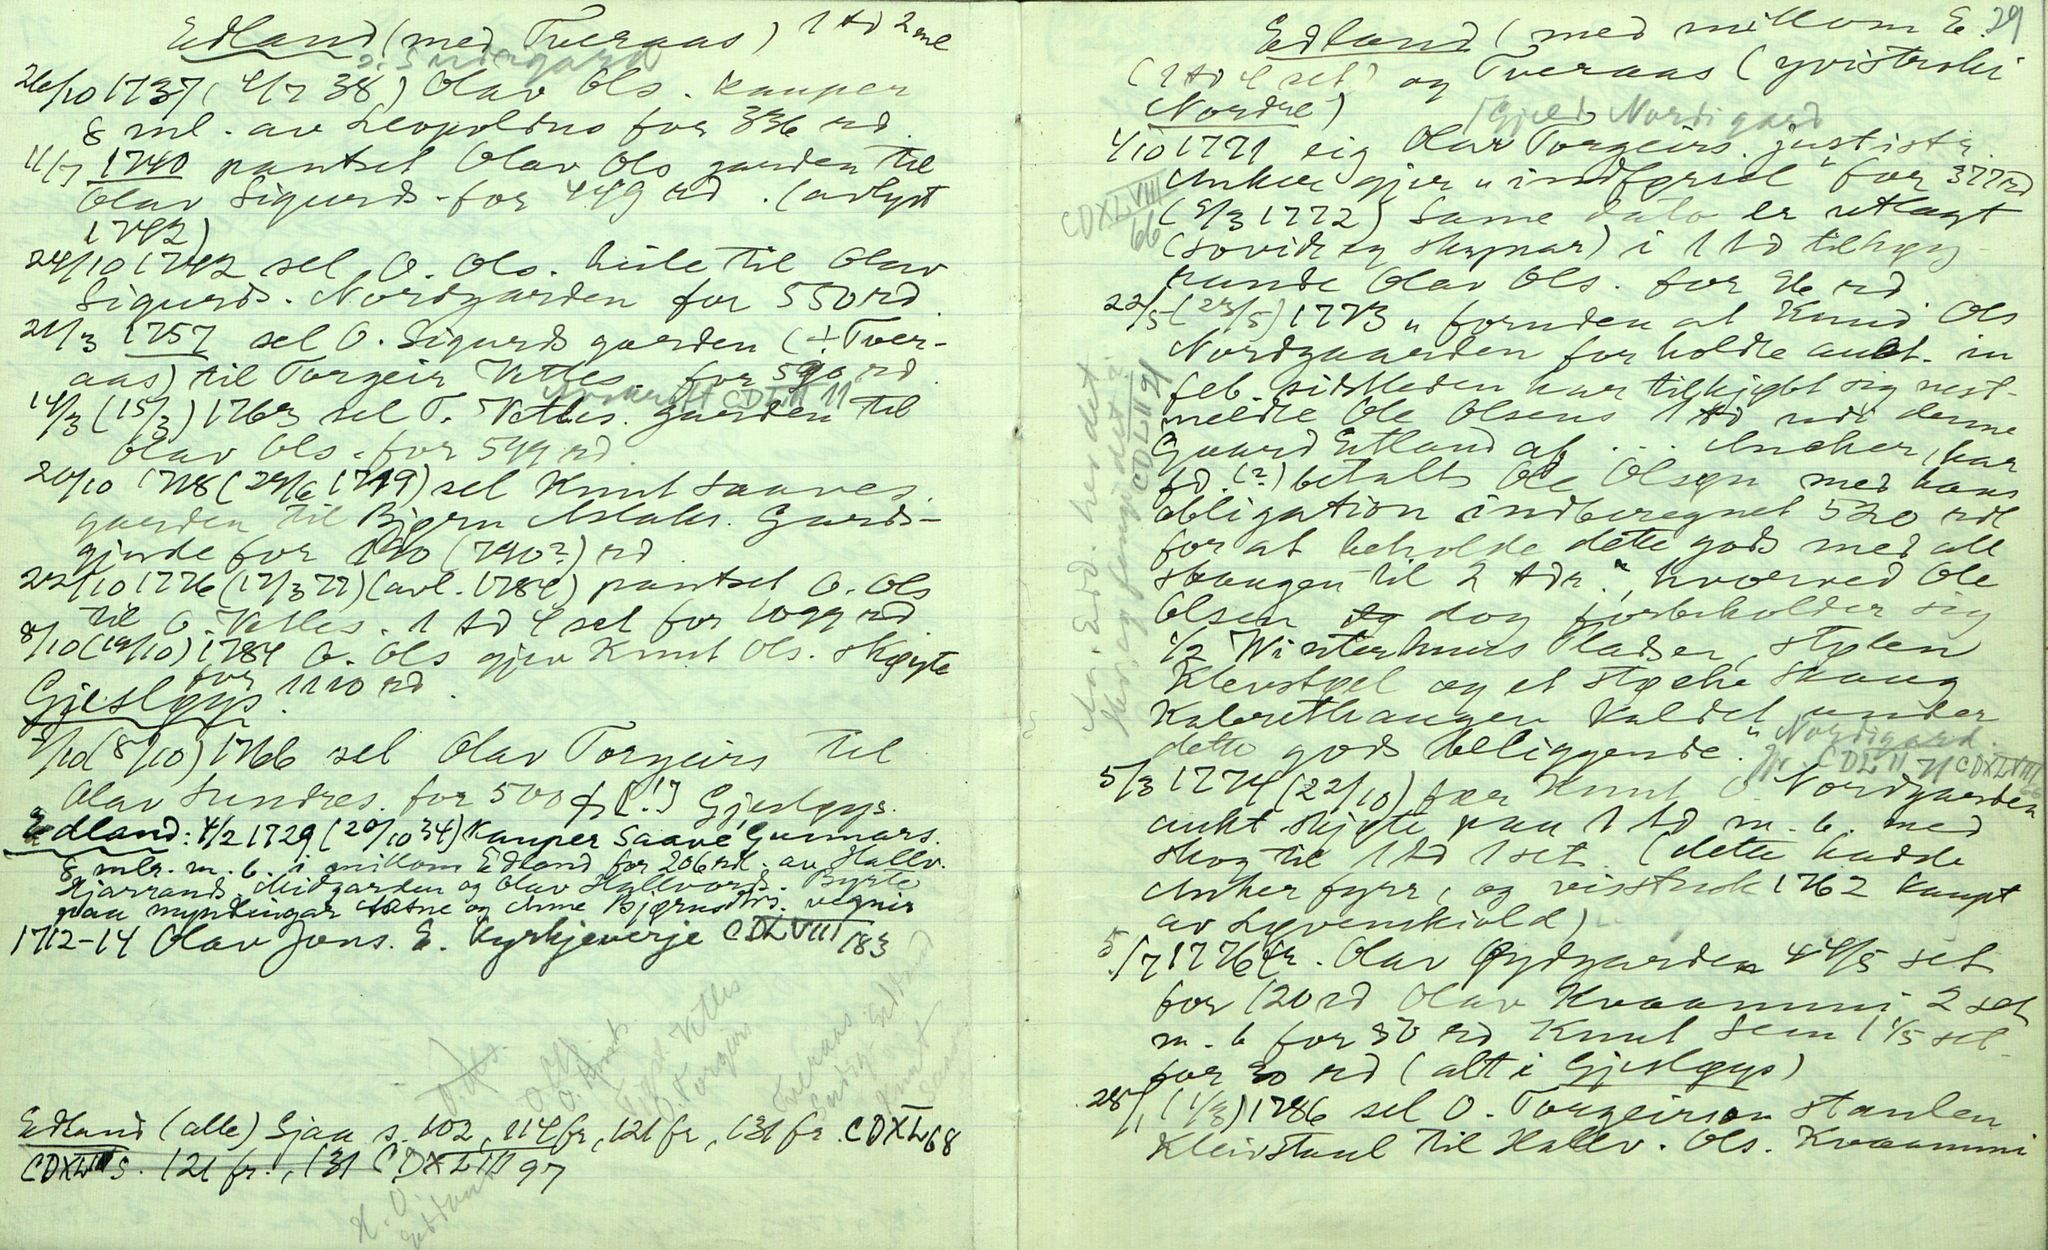 Edland (med Tveraas) 1 td 2 ml
26/10 1737 (4/7 38) Olav Ols. kauper
8 ml. av Leopoldus for 336 rd.
11/7 1740 pantset Olav Ols garden til
Olav Sigurds. for 449 rd. (avlyst
1742)
24/10 1742 sel O. Ols. heile til Olav
Sigurds. Nordgarden for 550 rd.
21/3 1757 sel O. Sigurds garden (+ Tver-
aas) til Torgeir Vetles. for 590 rd.
CDLII 11
14/3 (15/3) 1763 sel T. Vetles. garden til
Olav Ols. for 599 rd.
20/10 (24/6 1779) sel Knut Saaves.
garden til Bjørn Aslaks. Gards-
gjerde for (790?) rd.
22/10 1776 (17/3 77) (avl. 1784) pantset O. Ols
til O. Vetles. 1 td 4 set for 1099 rd.
8/10 (19/10) 1784 O. Ols gjev Knut Ols. skøyte
for 1110 rd.
Gjesløys.
(8/10) 1766 sel Olav Torgeirs til
Olav Sundres. for 500 (!) Gjesløys.
Edland: 4/2 1729 (20/10 34) Kauper Saave Gunnars.
8 mlr. m. b. i millom Edland for 206 rd. av Hallv.
Kjarrands. Midgarden og Olav Hallvords. Byrte
paa myndingar og Anne Bjørnsdtrs. vegner
1712-14 Olav Jons. E. kyrkjeverje CDLVIII 183
O. Ols.
O. Knuts
Vetles
O. Torgeirs
Tveraas
Edland (alle) Gjaa s. 102, 114 fr, 121 fr, 131 fr. CDXL 68
s. 121 fr., 131 CDXLIII 97
Edland (med millom E. 29
(1 td 4 set) og Tveraas (yvistroki
Nordre)
(Gjeld Nordigard
4/10 1771 eig Olav Torgeirs. justistr.
Anker gjer "indførsel" for 377 rd
CDXLVIII
66
(5/3 1772) Same dato er utlagt
(sovidt eg skynar) i 1 td tilhøy-
rande Olav Ols. for 96 rd.
22/5 (24/5) 1773 "foruden at Knud Ols
Nordgaarden for holdte aukt. in
feb. sidstleden har tilkjøbt sig nest-
meldte Ole Olsens 1 td udi denne
Gaard Edland af ... Ancher, har
fd. (?) betalt Ole Olsøn med hans
obligation indberegnet 520 rdl
for at beholde dette gods med all
skaugen til 2 tdr.", hvorved Ole
Olsen dog forbeholder sig
1/2 Winterhuus Pladsen, Stølen
Klevstøel og et støcke Skaug
Kaldet under
dette gods beliggende."
Nordigard.
CDLII 71 CDXLVIII
CDLII 21
5/3 1774 (22/10) fær Knut O. Nordgarden
aukt. skjøte paa 1 td m. b. med
skog til 1 td 1 set. (dette hadde
Anker fyrr, og visstnok 1762 kaupt
av Løvenskiold)
5/7 1776 fr. Olav Øydgarden 4 4/5 set
for 120 rd Olav Kvaammi 2 set
m. b for 50 rd Knut Sem 1 1/5 set
for 30 rd (alt i Gjesløys)
28/1 (1/3) 1786 sel O. Torgeirson staulen
Kleivstaul til Hallv. Ols. Kvaammi